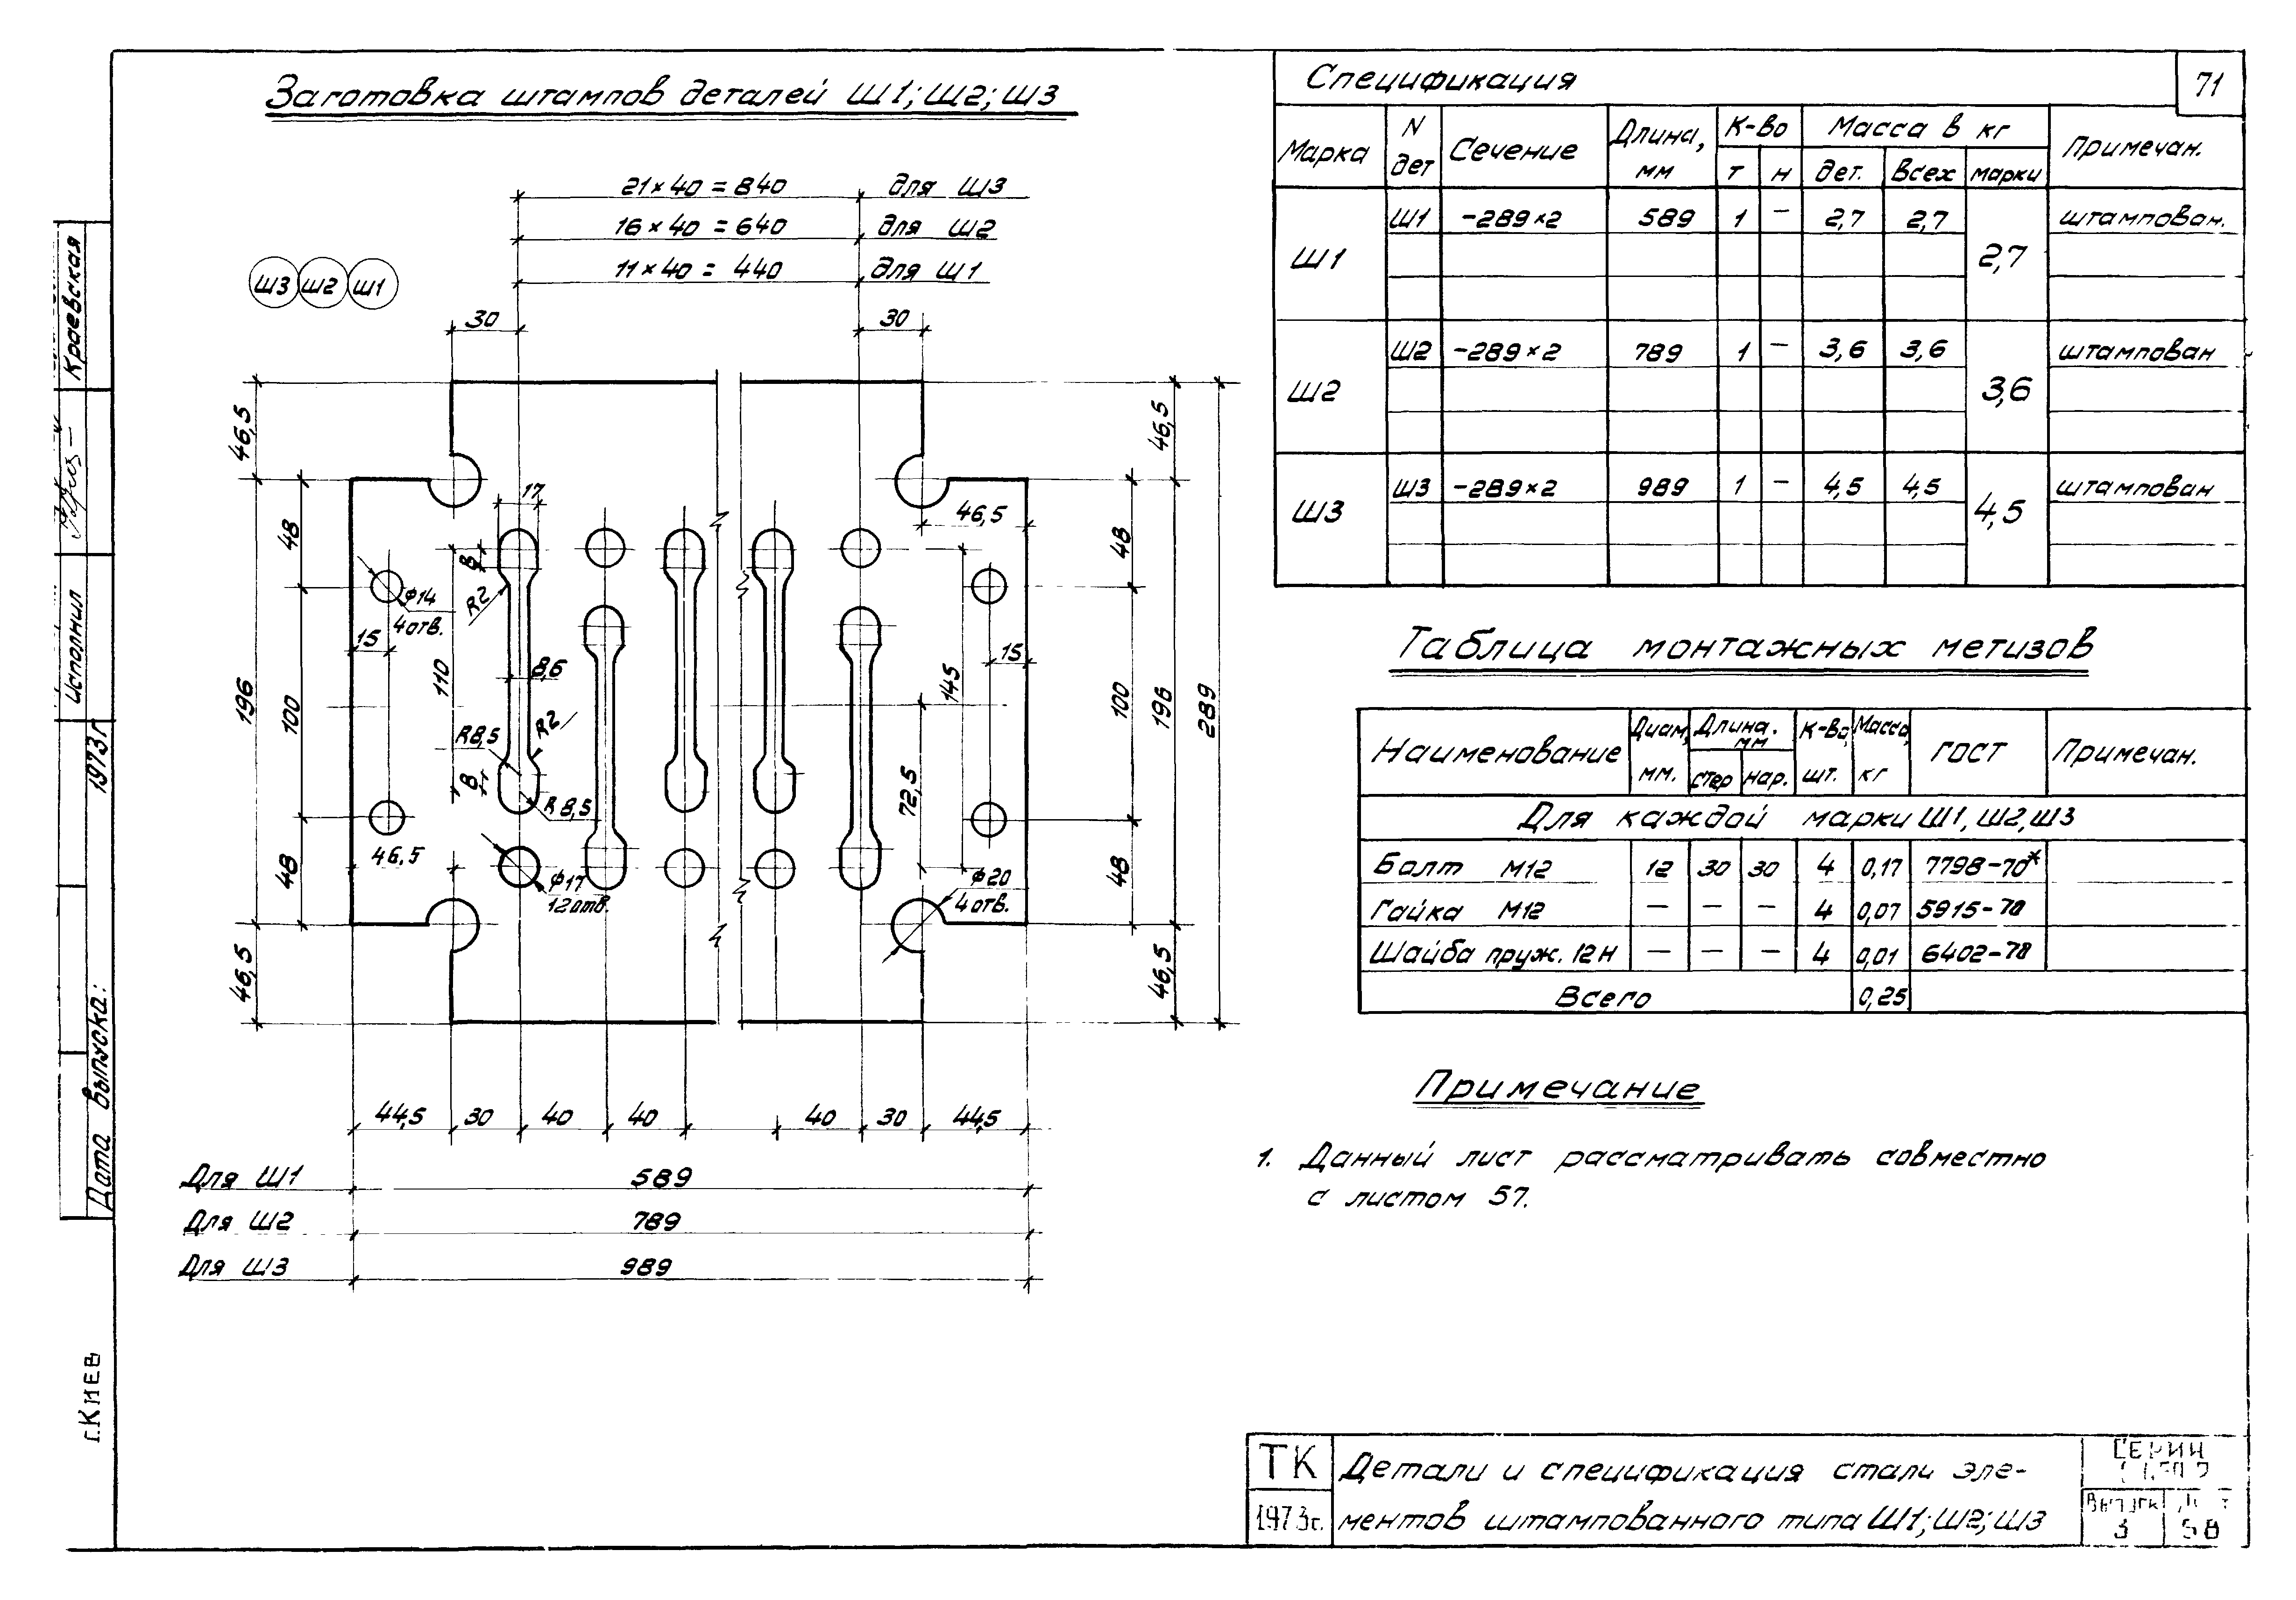 Заготовка штампов деталей Ш1; Ш2; Ш3
21×40 = 840 для Ш3
16×40 = 640 для Ш2
11×40 = 440 для Ш1
Ш3 Ш2 Ш1
30 30
46,5 46,5
17
46,5
48 48
8
R2
ф14
4 отв.
15 15
110 8,6 145
196 100 100 196 289
R2
R8,5
8
R8,5
72,5
46,5
48 48
ф17
12 отв.
ф20
4 отв.
46,5 46,5
44,5 30 40 40 40 30 44,5
Для Ш1 589
Для Ш2 789
Для Ш3 989
Спецификация
71
Марка N дет Сечение Длина, мм К-во Масса в кг Примечан.
т н дет. Всех марки
Ш1 Ш1 -289×2 589 1 - 2,7 2,7 2,7 штампован.
Ш2 Ш2 -289×2 789 1 - 3,6 3,6 3,6 штампован
Ш3 Ш3 -289×2 989 1 - 4,5 4,5 4,5 штампован
Таблица монтажных метизов
Наименование Диам, мм. Длина. мм К-во, шт. Масса, кг ГОСТ Примечан.
стер нар.
Для каждой марки Ш1, Ш2, Ш3
Болт М12 12 30 30 4 0,17 7798-70*
Гайка М12 — — — 4 0,07 5915-70
Шайба пруж. 12Н — — — 4 0,01 6402-70
Всего 0,25
Примечание
1. Данный лист рассматривать совместно
с листом 57.
ТК
1973г.
Детали и спецификация стали эле-
ментов штампованного типа Ш1; Ш2; Ш3
СЕРИЯ
Выпуск
3 58
Краевская
Исполнил
Дата выпуска: 1973г
г.Киев